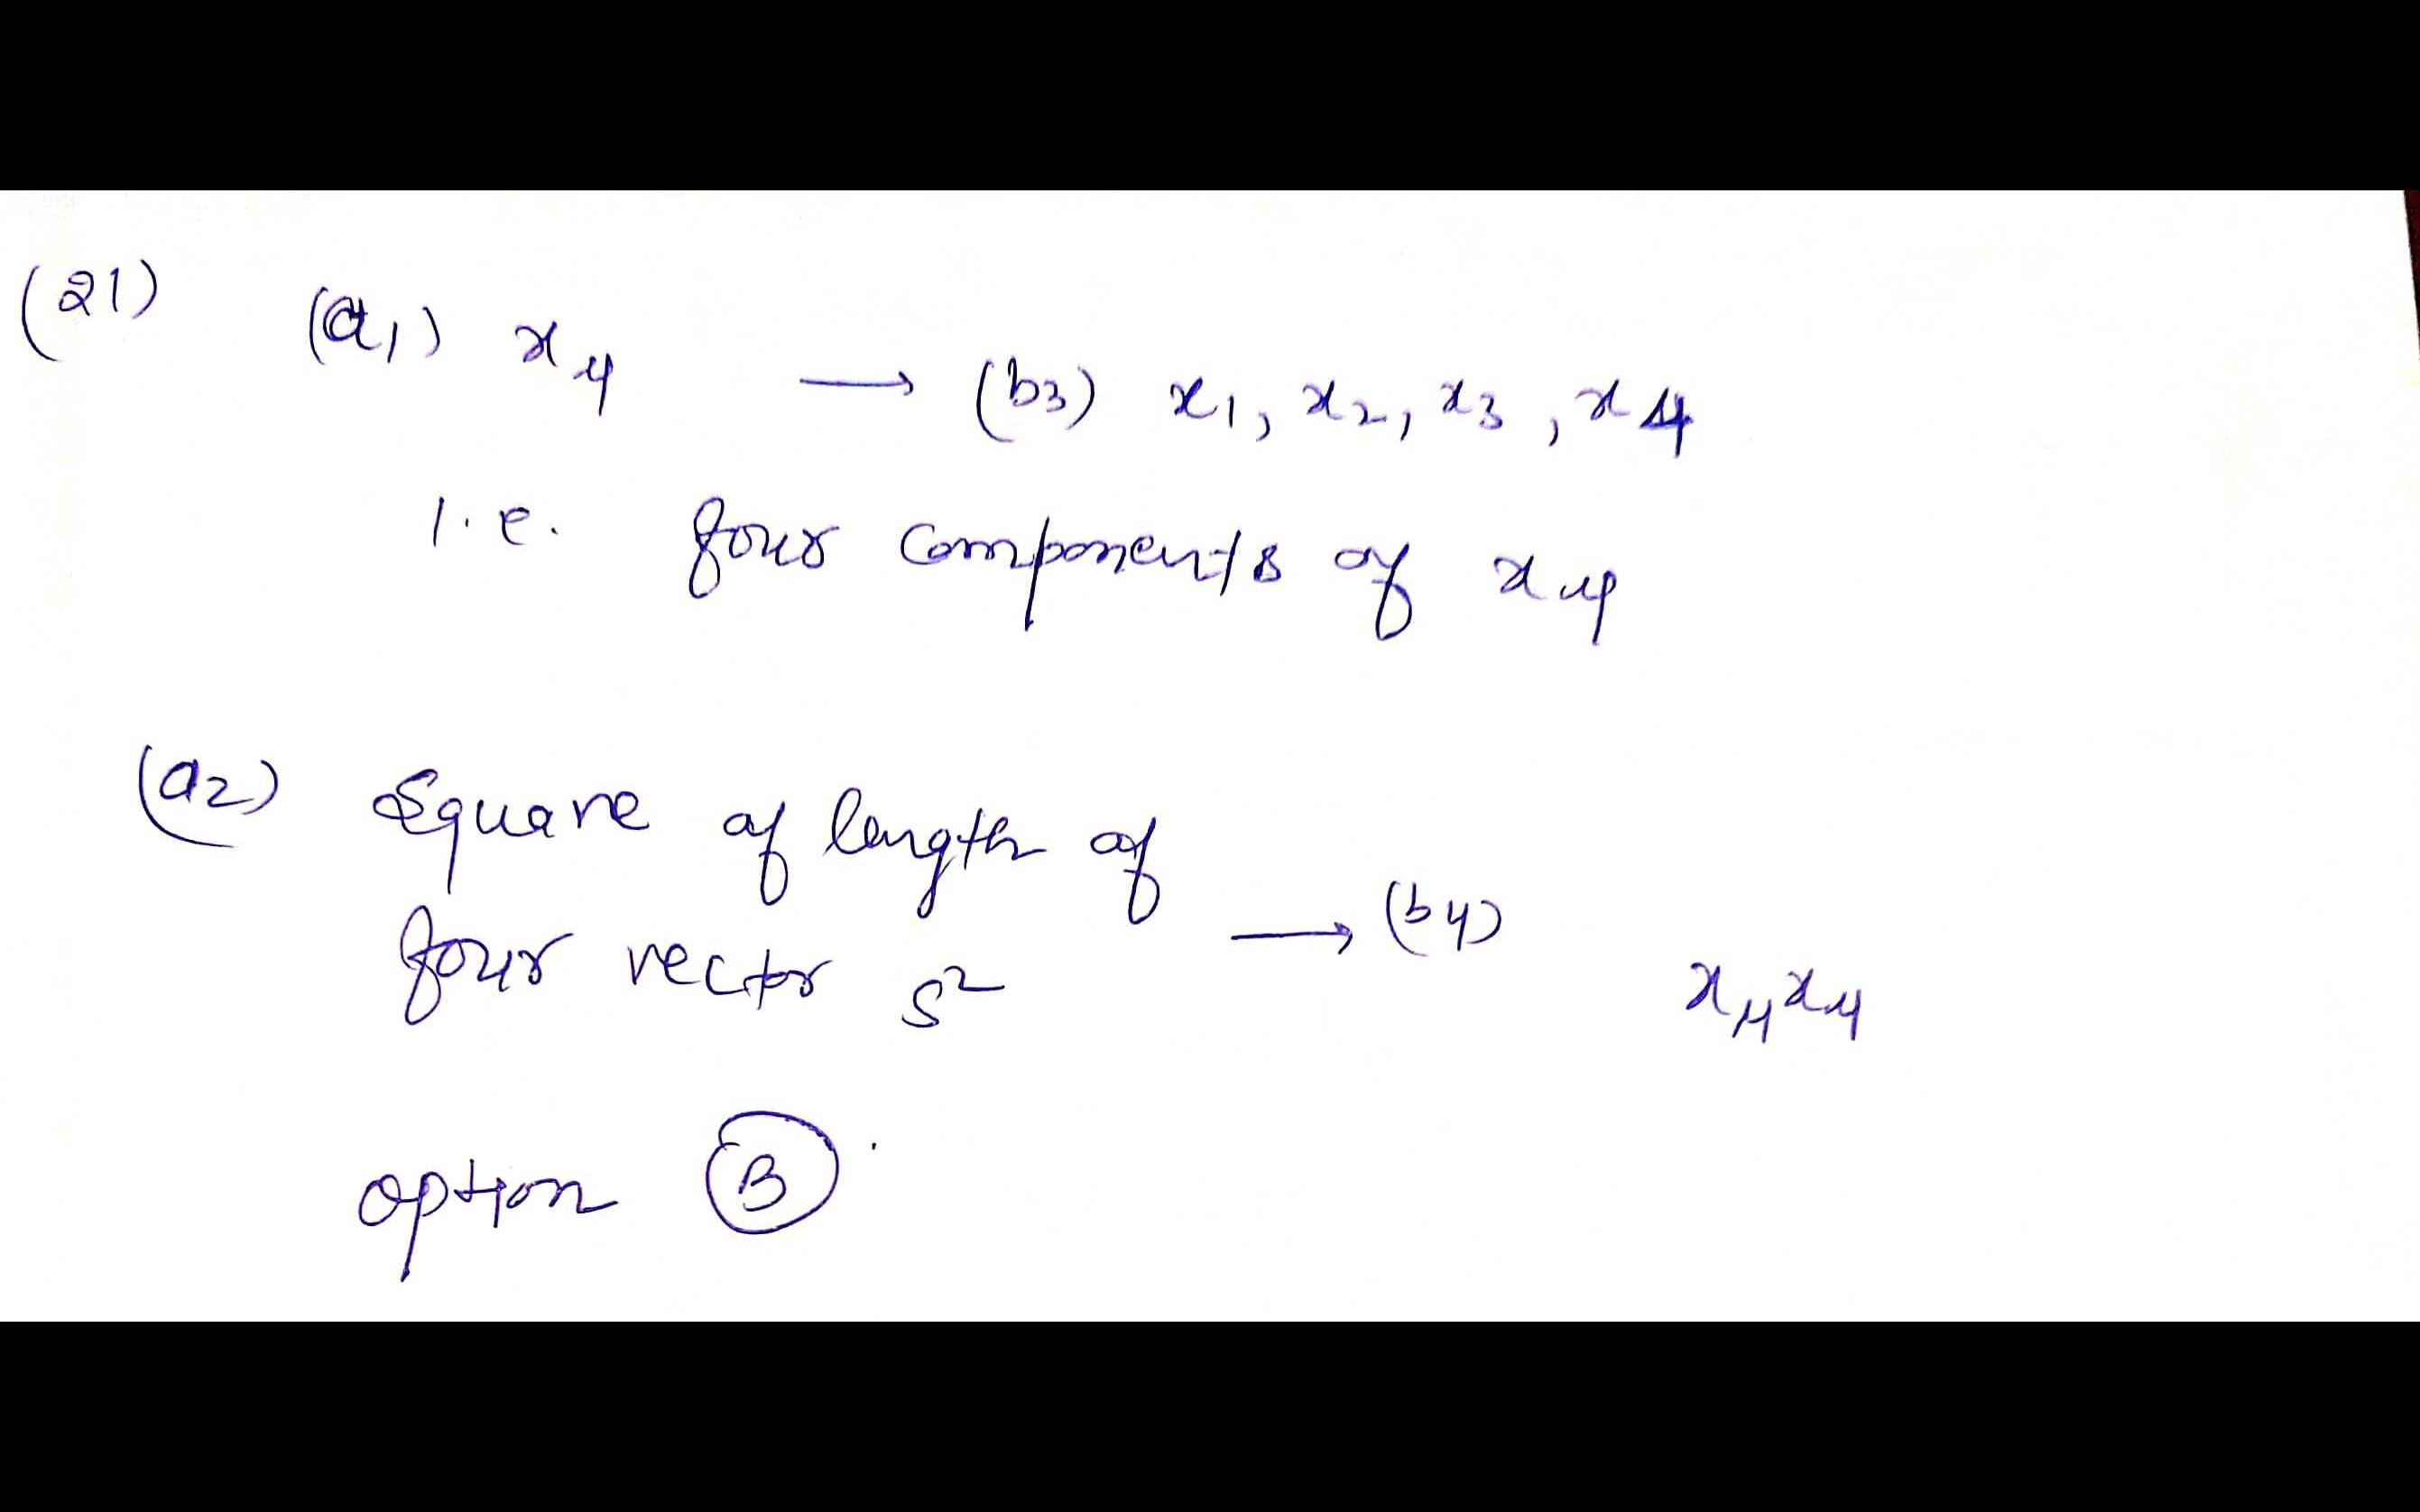 (21) (a1) xμ → (b3) x1, x2, x3, x4
i.e. four components of xμ
(a2) Square of length of
four vector s² → (b4) xμxμ
option B